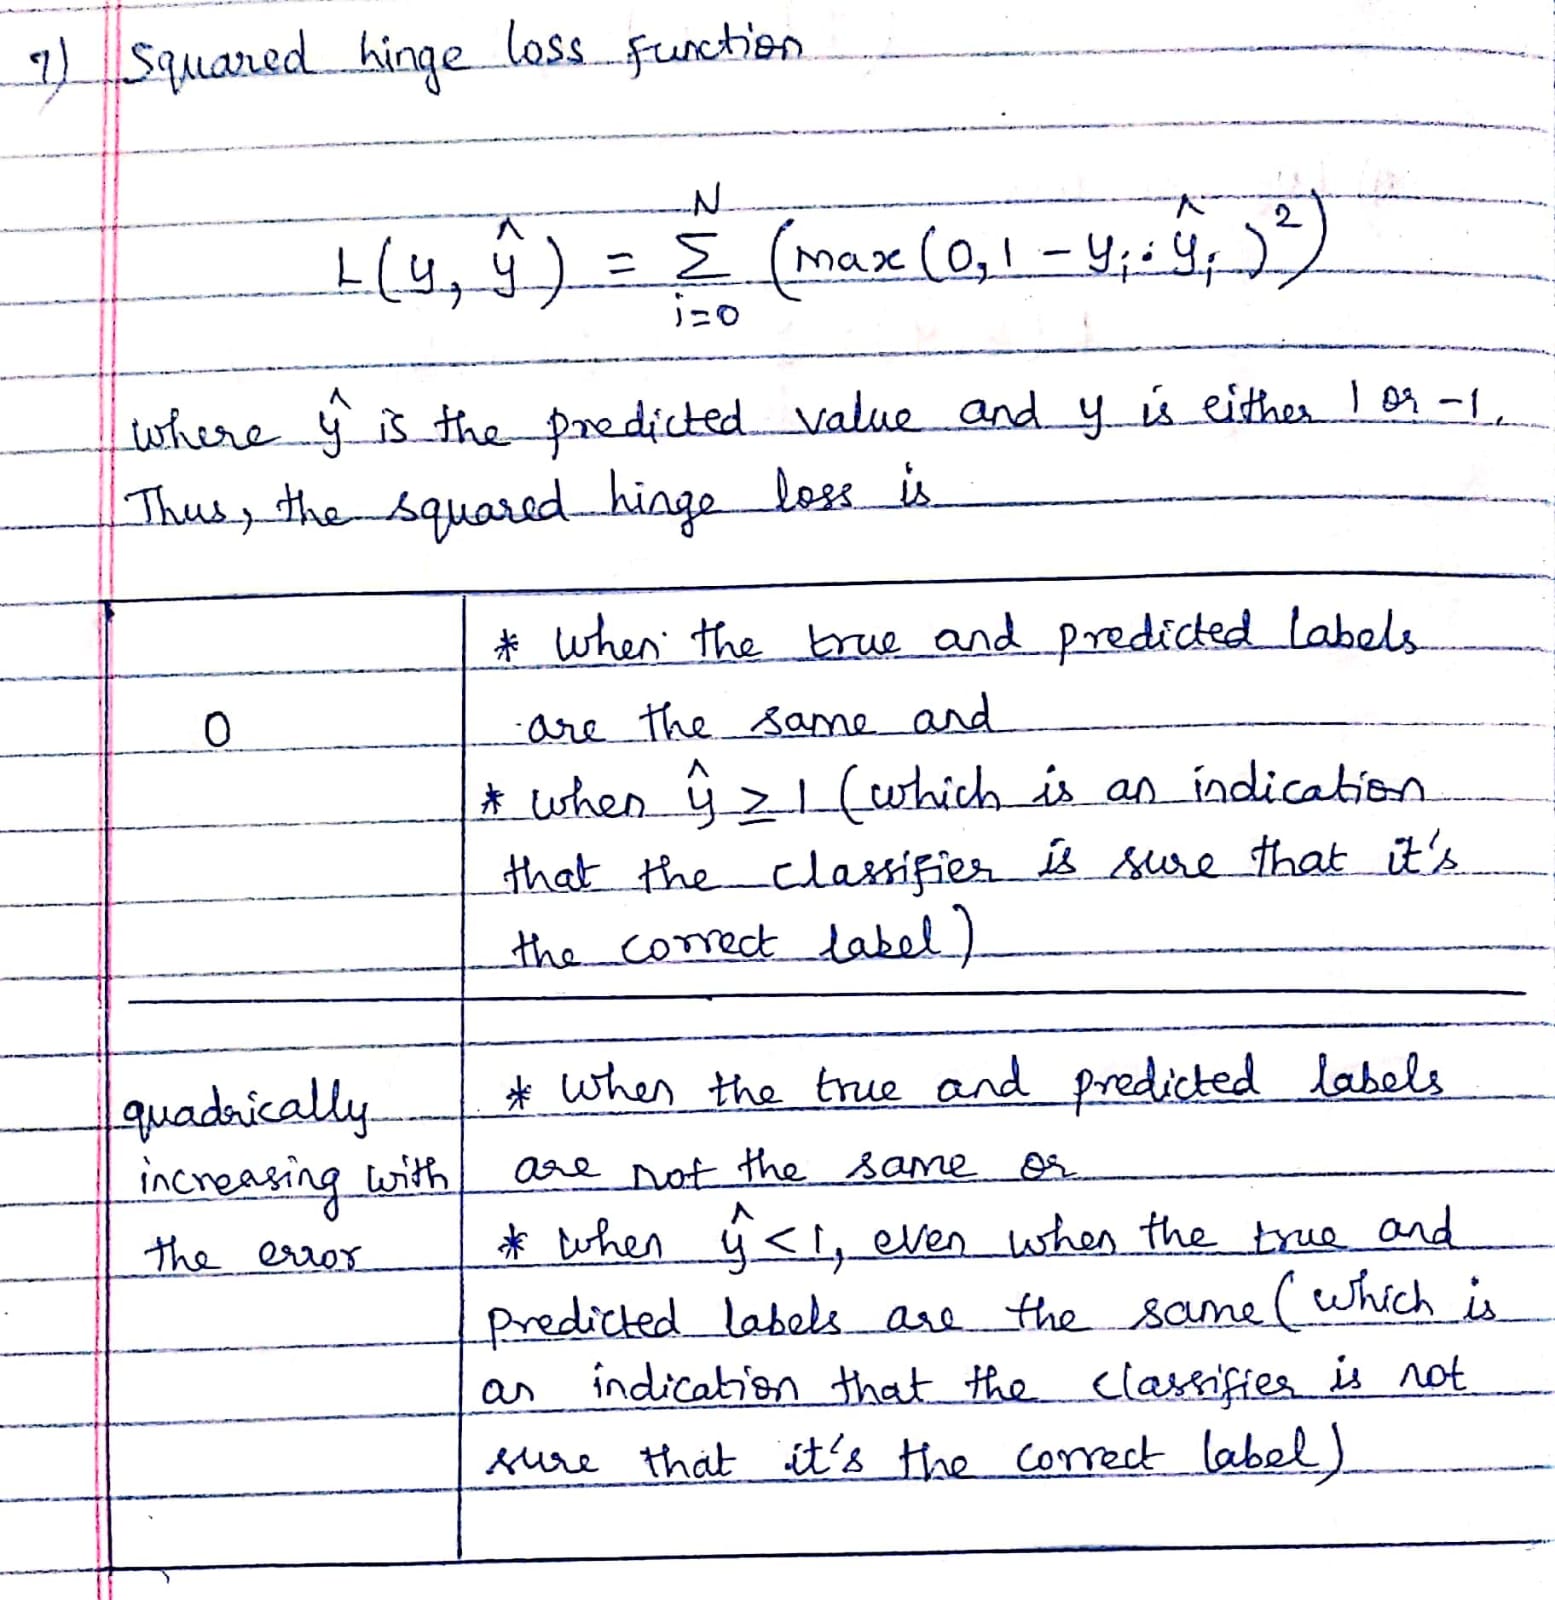 7) Squared hinge loss function
L(y, ŷ) = Σ_{i=0}^{N} (max(0,1 - yᵢ·ŷᵢ)²)
where ŷ is the predicted value and y is either 1 or -1.
Thus, the squared hinge loss is
* when the true and predicted labels
0
are the same and
* when ŷ ≥ 1 (which is an indication
that the classifier is sure that it's
the correct label)
quadrically
increasing with
the error
* when the true and predicted labels
are not the same or
* when ŷ < 1, even when the true and
predicted labels are the same (which is
an indication that the classifier is not
sure that it's the correct label)